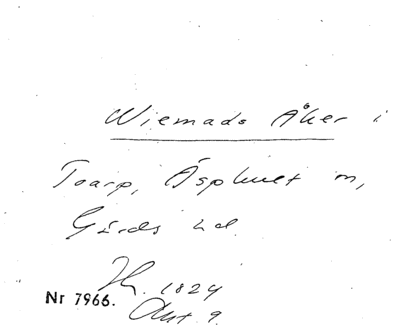 Wiemads Åker i
Toarp, Äsphult sn,
Gärds hd.
Hr. 1824
Nr 7966.
Akt 9.